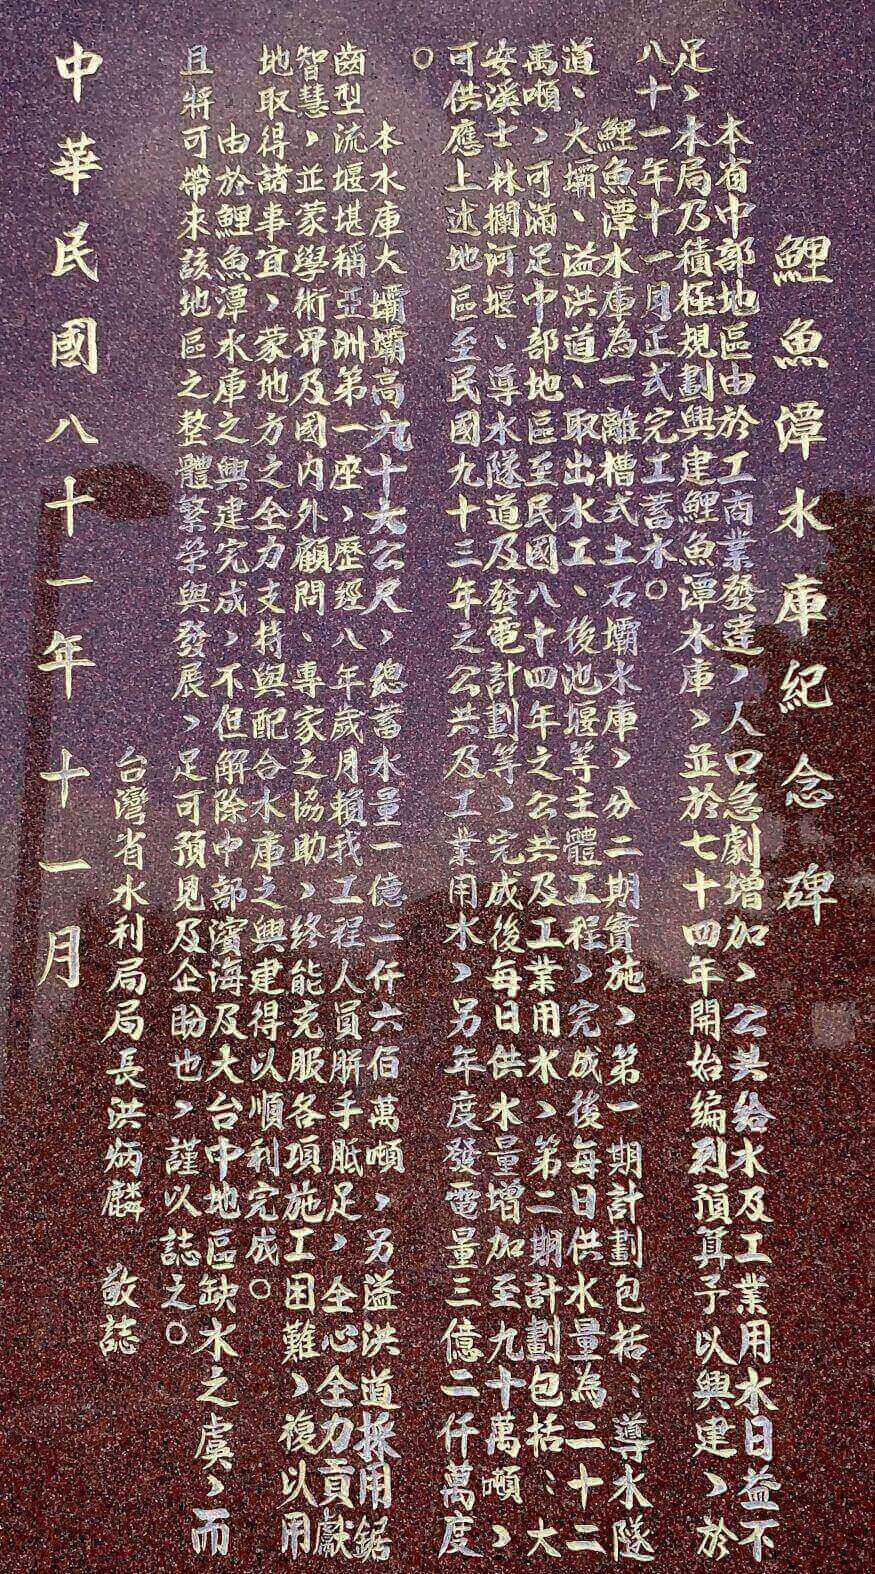 鯉魚潭水庫紀念碑
本省中部地區由於工商業發達、人口急劇增加、公共給水及工業用水日益不
足、本局乃積極規劃興建鯉魚潭水庫、並於七十四年開始編列預算予以興建、於
八十一年十一月正式完工蓄水。
鯉魚潭水庫為一離槽式土石壩水庫、分二期實施、第一期計劃包括：導水隧
道、大壩、溢洪道、取出水工、後池堰等主體工程、完成後每日供水量為二十二
萬噸、可滿足中部地區至民國八十四年之公共及工業用水、第二期計劃包括：大
安溪士林攔河堰、導水隧道及發電計劃等、完成後每日供水量增加至九十萬噸、
可供應上述地區至民國九十三年之公共及工業用水、另年度發電量三億二仟萬度
。
本水庫大壩壩高九十六公尺、總蓄水量一億二仟六佰萬噸、另溢洪道採用鋸
齒型流堰堪稱亞洲第一座、歷經八年歲月賴我工程人員胼手胝足、全心全力貢獻
智慧、並蒙學術界及國內外顧問、專家之協助、終能克服各項施工困難、複以用
地取得諸事宜、蒙地方之全力支持與配合水庫之興建得以順利完成。
由於鯉魚潭水庫之興建完成、不但解除中部濱海及大台中地區缺水之虞、而
且將可帶來該地區之整體繁榮與發展、足可預見及企盼也、謹以誌之。
台灣省水利局局長洪炳麟 敬誌
中華民國八十一年十一月